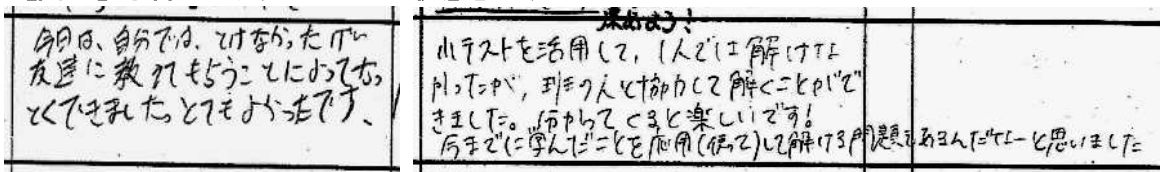 今日は、自分では、とけなかったけど
友達に教えてもらうことによって
とくできました。とてもよかったです、
深めよう!
小テストを活用して、1人では解けな
かったが、班の人と協力して解くことがで
きました。分かってくると楽しいです!
今までに学んだことを応用(使って)して解ける問題もあるんだなーと思いました